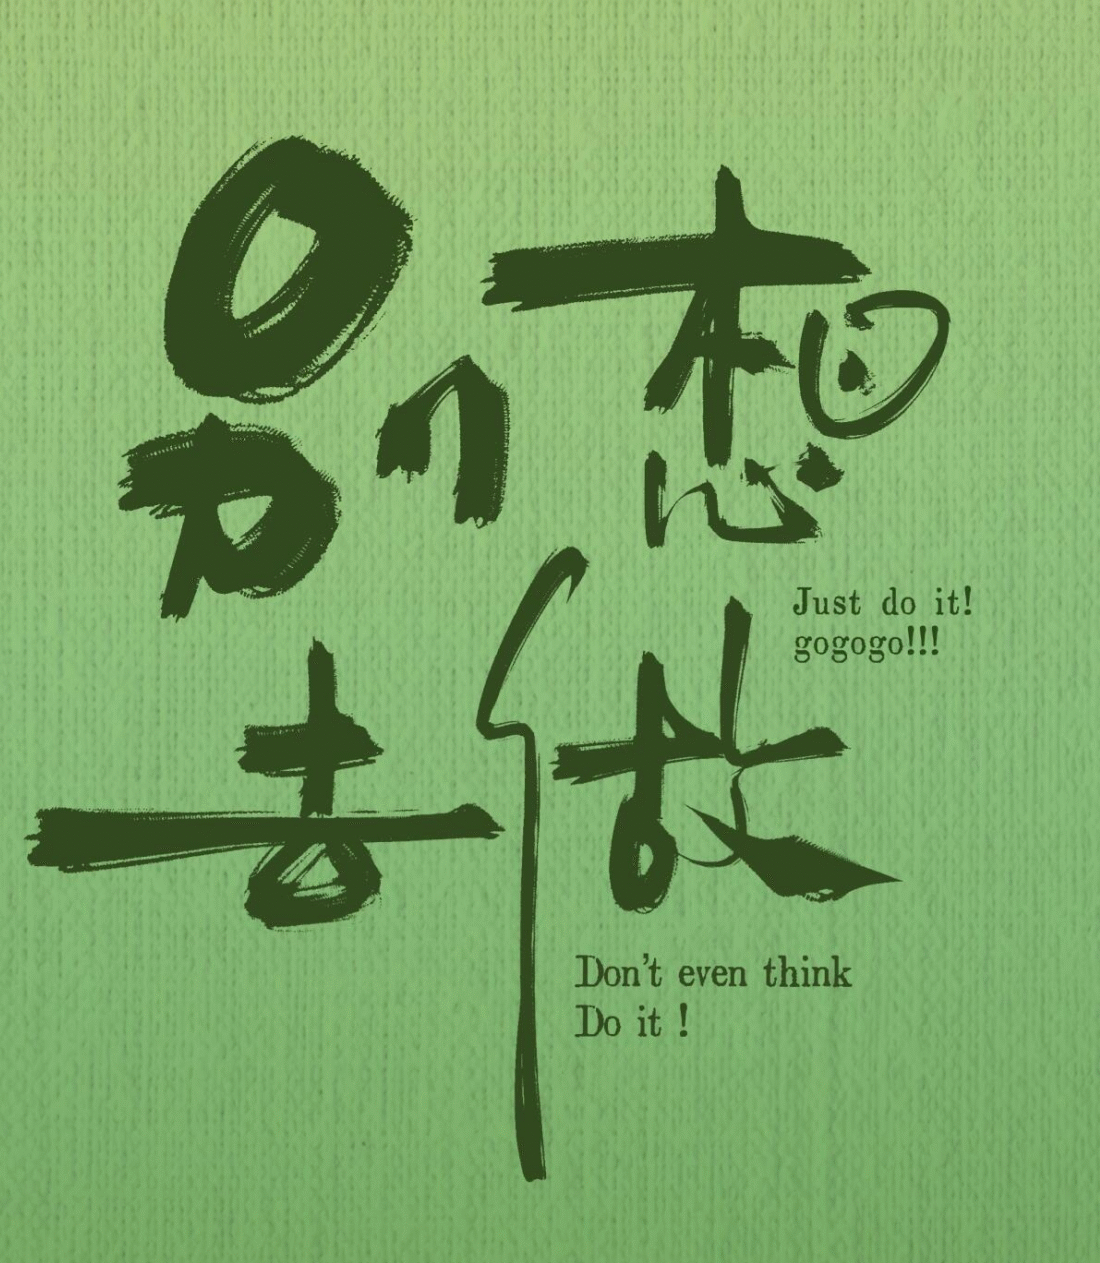 别想
Just do it!
gogogo!!!
去做
Don't even think
Do it !